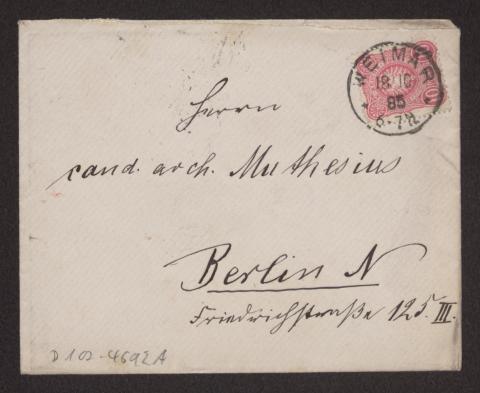 WEIMAR
18 10
85
6-7N.
Herrn
cand. arch. Muthesius
Berlin N
Friedrichstraße 125. III.
D 102-4692A